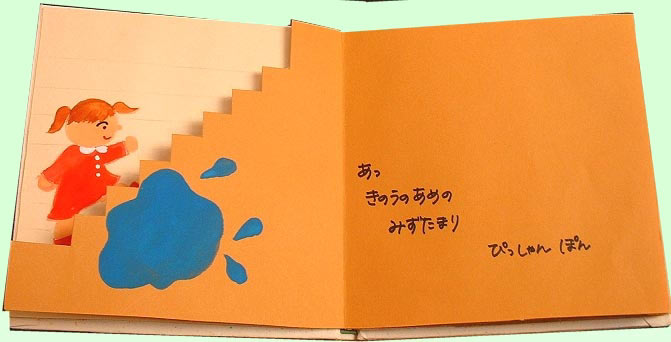 あっ
きのうのあめの
みずたまり
ぴっしゃん ぽん